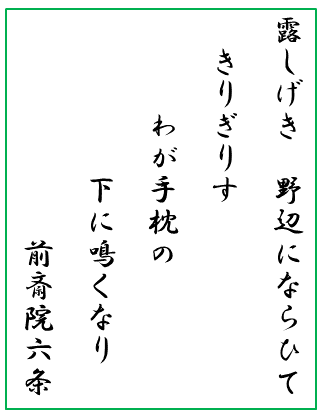 露しげき　野辺にならひて
きりぎりす
わが手枕の
下に鳴くなり
前斎院六条